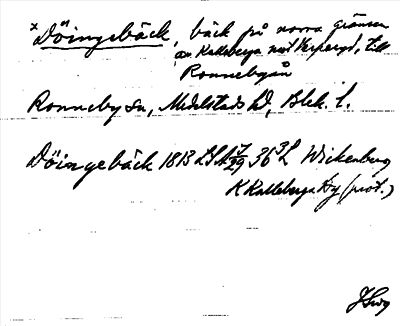 x Döingebäck, bäck på norra gränsen
av Kalleberga mot Vesperyd, till
Ronnebyån
Ronneby sn, Medelstads hd, Blek. l.
Döingebäck 1813 36 Wickenberg
K Kalleberga By (prot.)